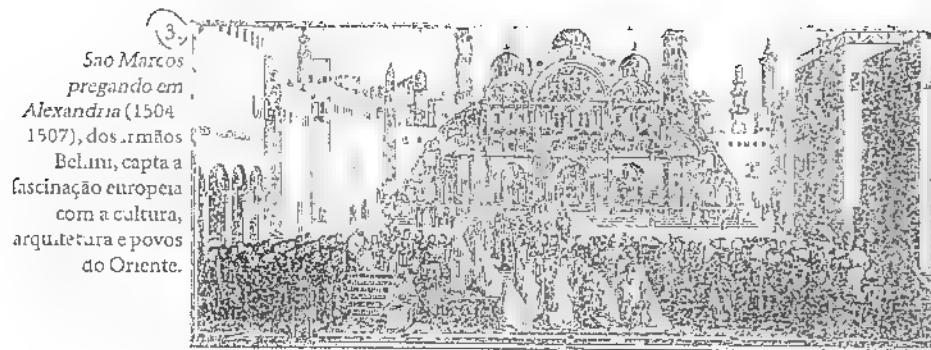 3.
São Marcos
pregando em
Alexandria (1504
1507), dos irmãos
Bellini, capta a
fascinação europeia
com a cultura,
arquitetura e povos
do Oriente.